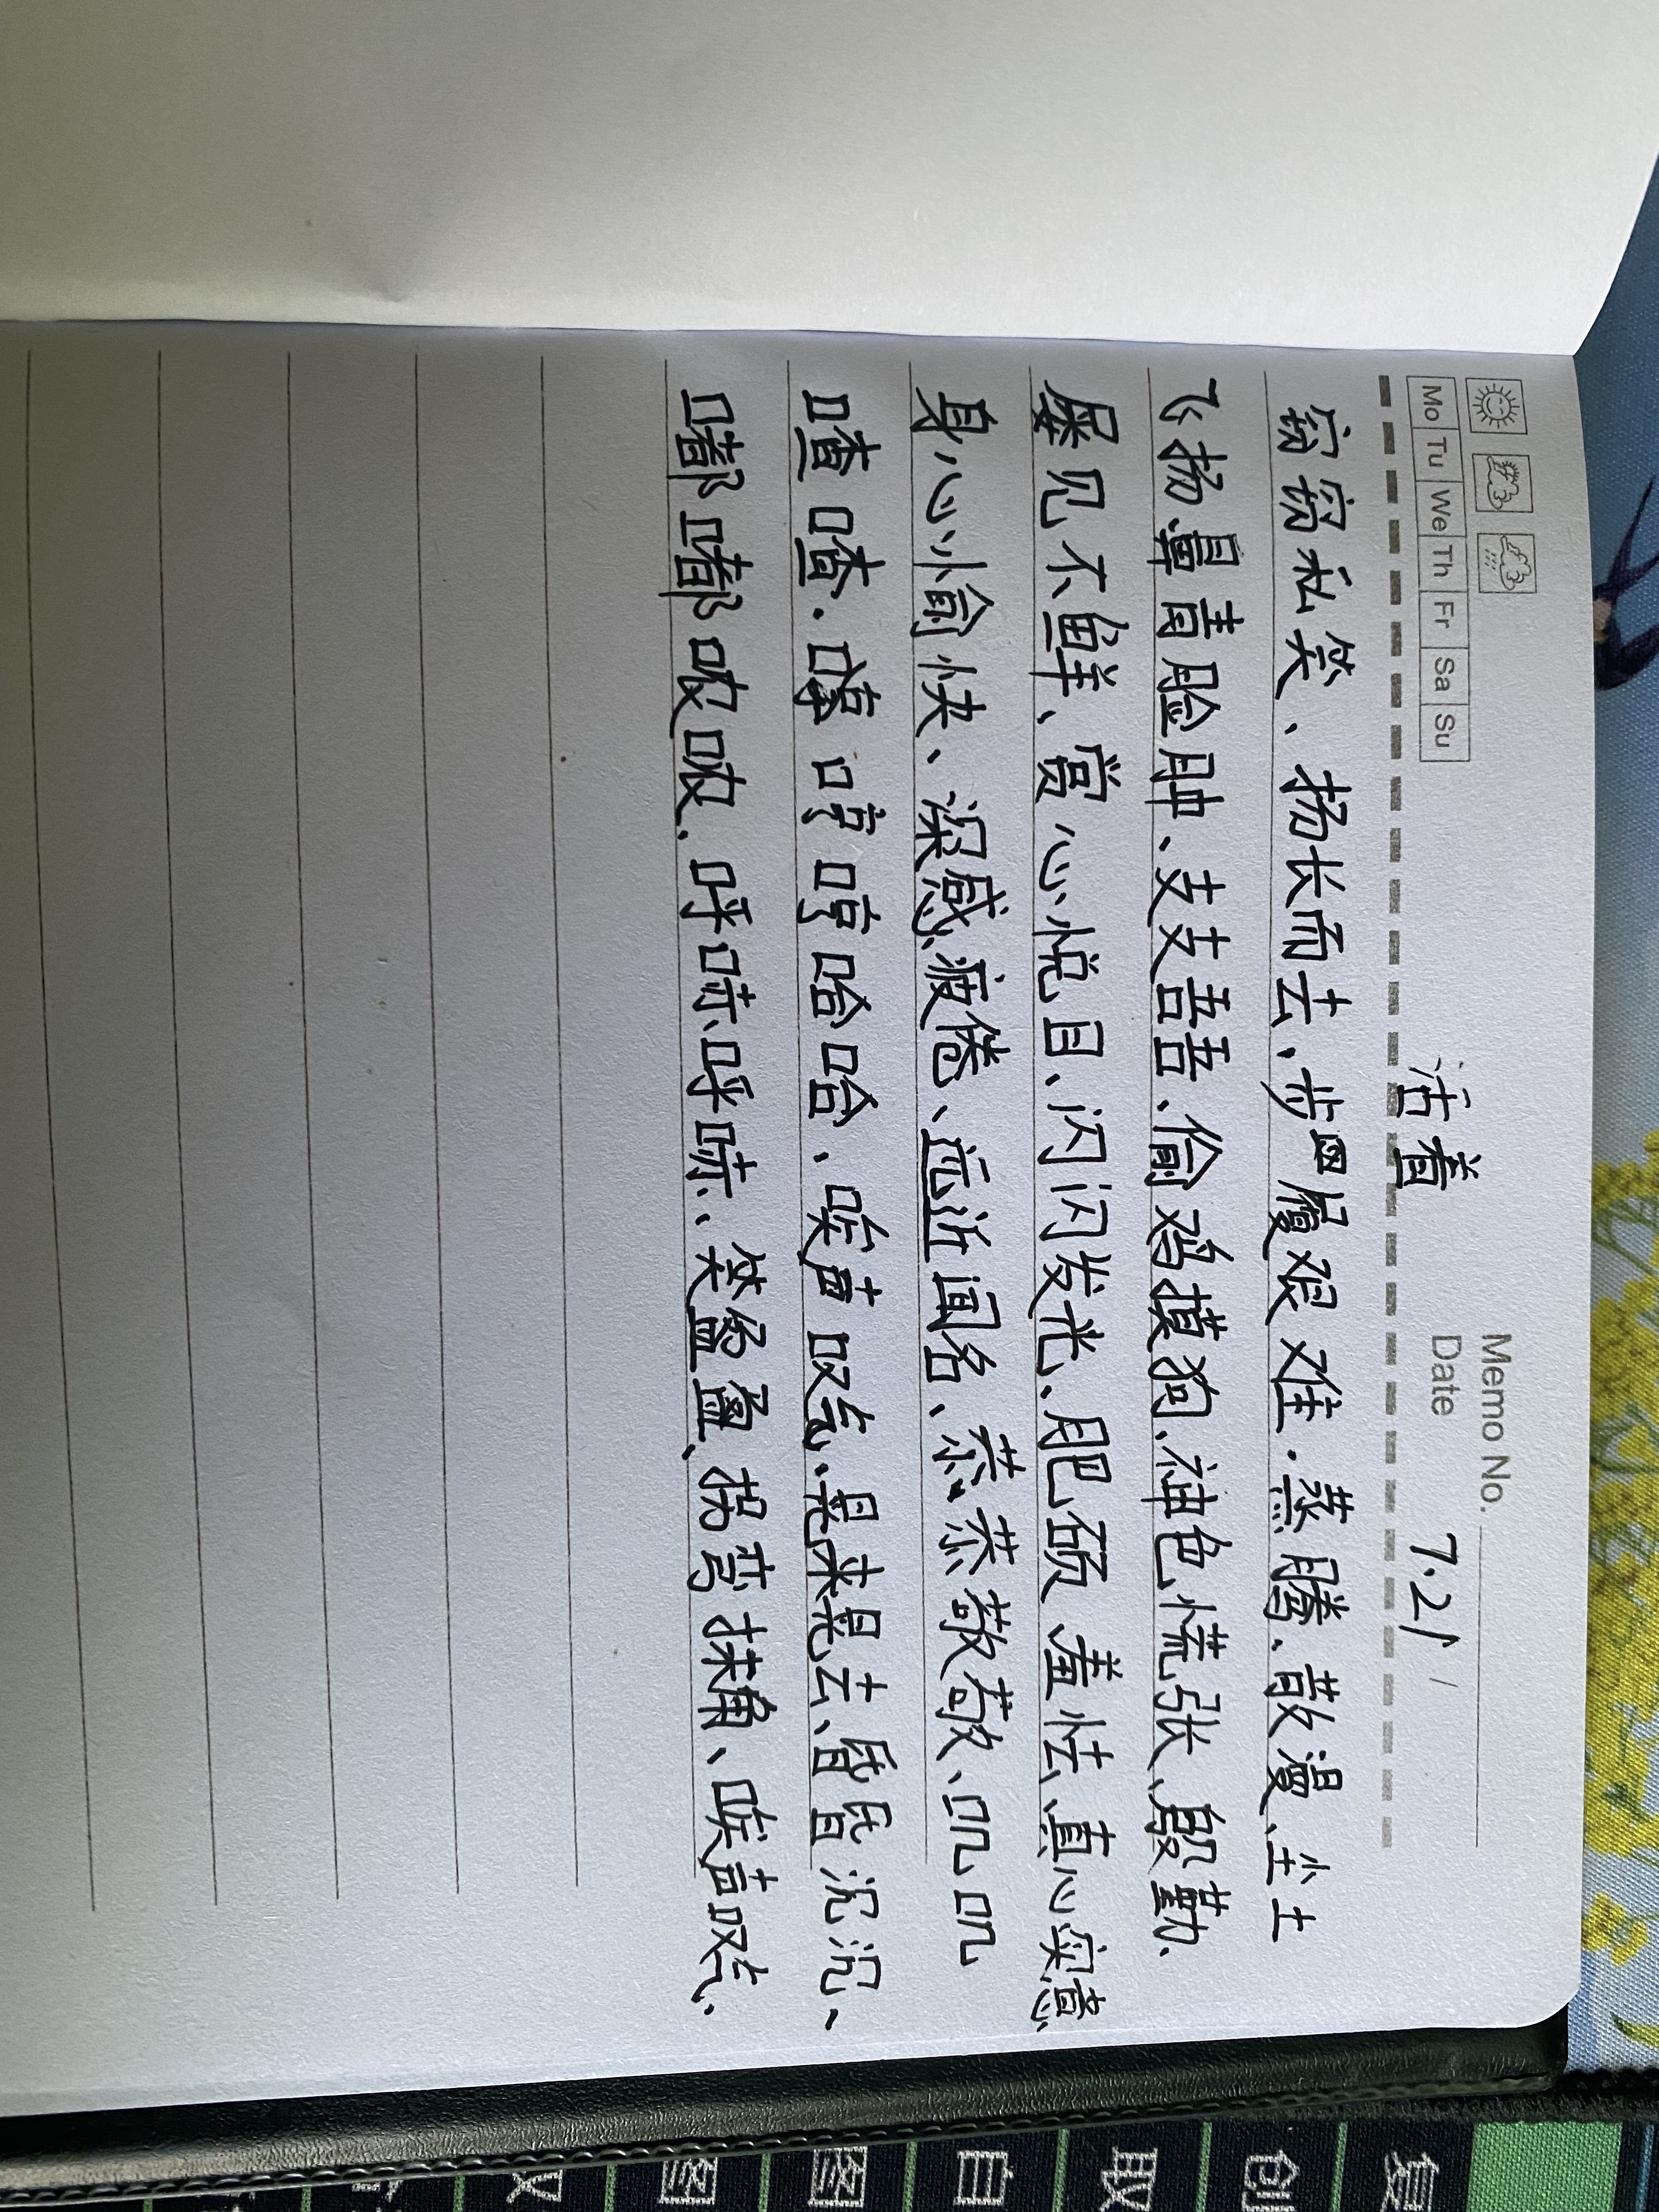 Memo No.
Mo Tu We Th Fr Sa Su
Date 7.21 /
活着
窃窃私笑、扬长而去、步履艰难、蒸腾、散漫、尘土
飞扬、鼻青脸肿、支支吾吾、偷鸡摸狗、神色慌张、殷勤、
屡见不鲜、赏心悦目、闪闪发光、肥硕、羞怯、真心实意
身心愉快、深感疲倦、远近闻名、恭恭敬敬、叽叽
喳喳、嘻哼哼哈哈、唉声叹气、晃来晃去、昏昏沉沉、
嘟嘟哝哝、呼哧呼哧、笑盈盈、拐弯抹角、唉声叹气、
复
创
取
自
图
图
权